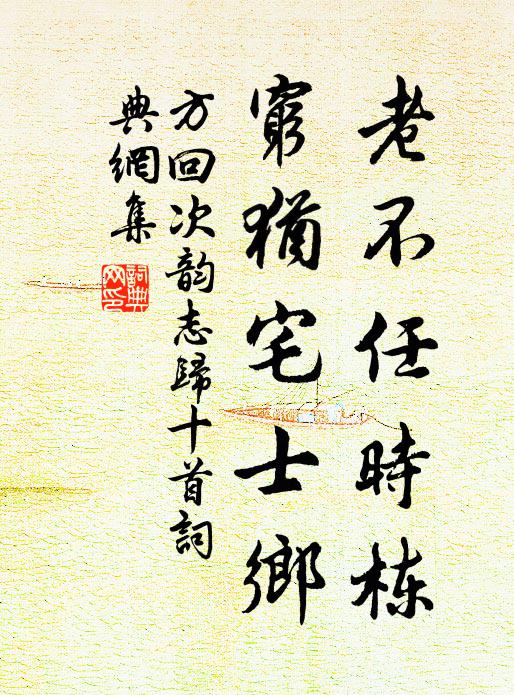 老不任時棟
窮猶宅士鄉
方回次韵志歸十首詞
典網集
詞典网印